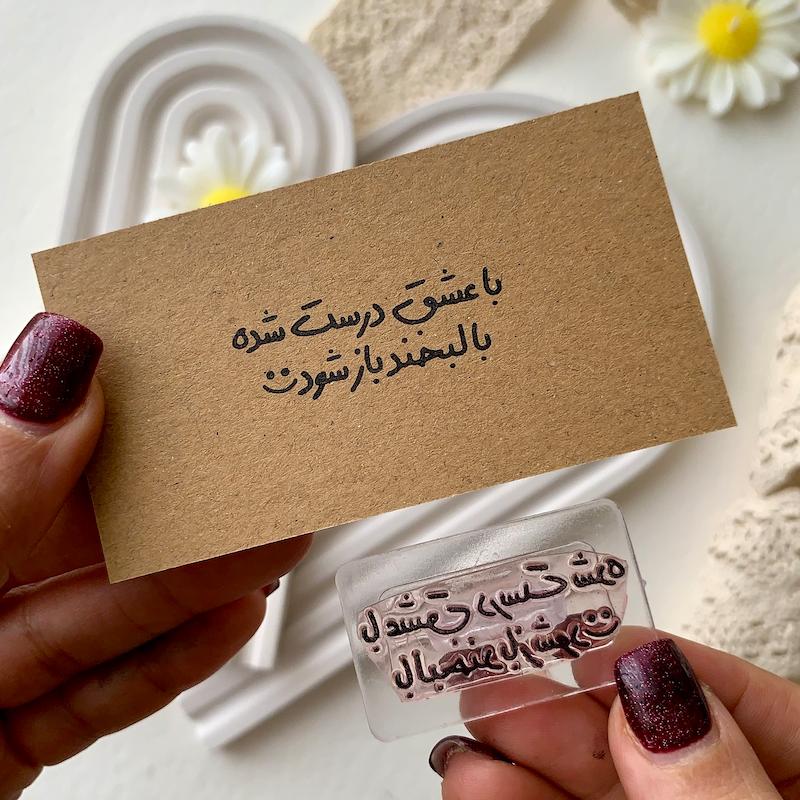 با عشق درست شده
با لبخند باز شود